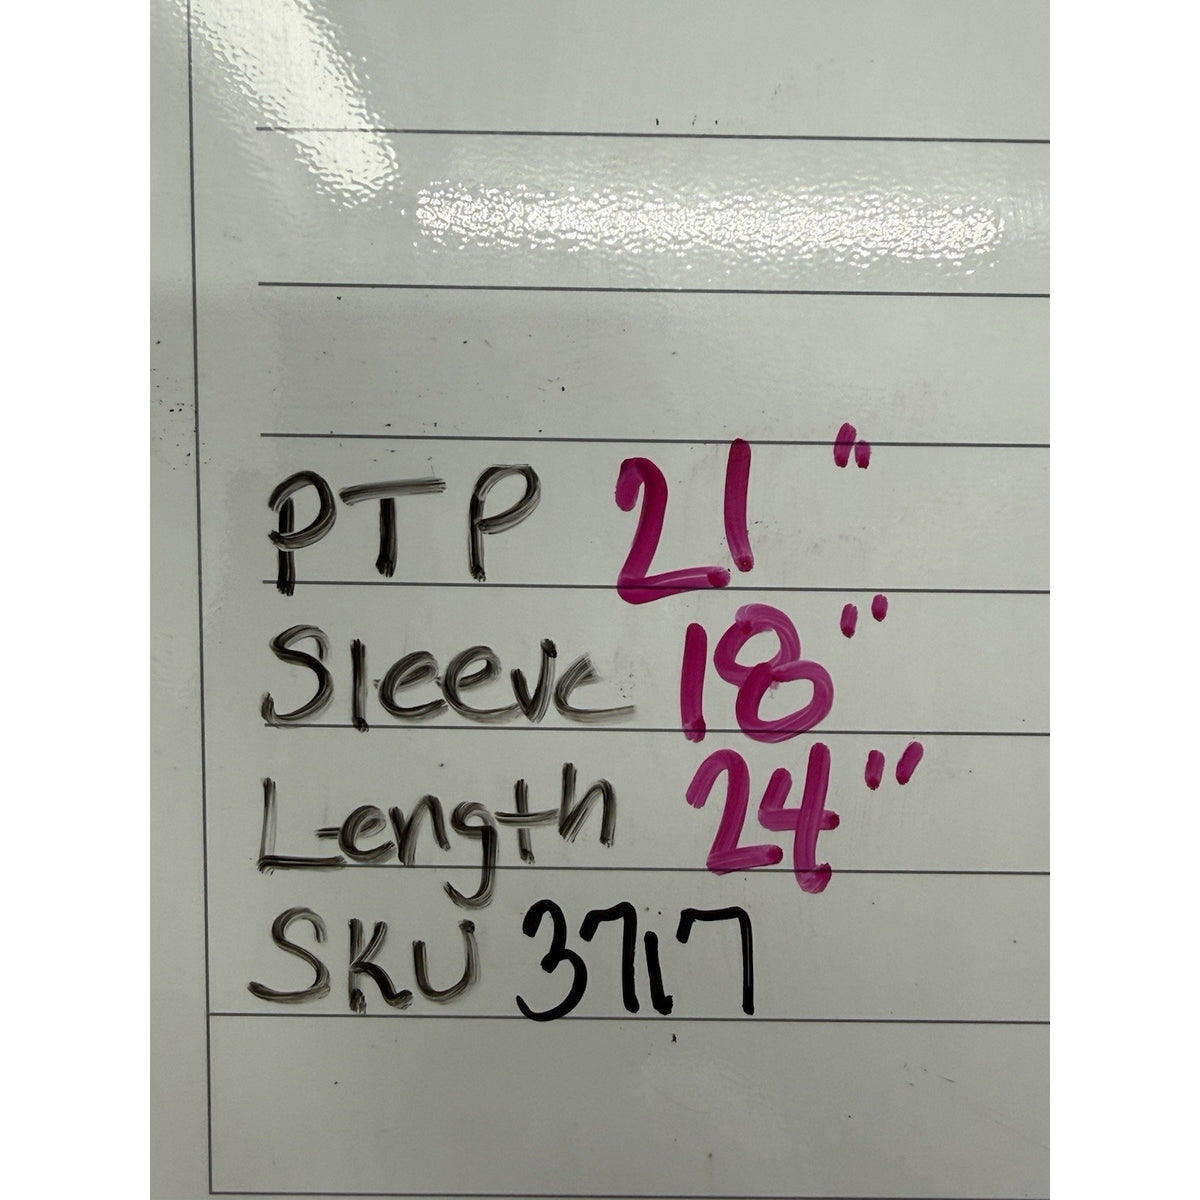 PTP 21"
Sleeve 18"
Length 24"
SKU 3717